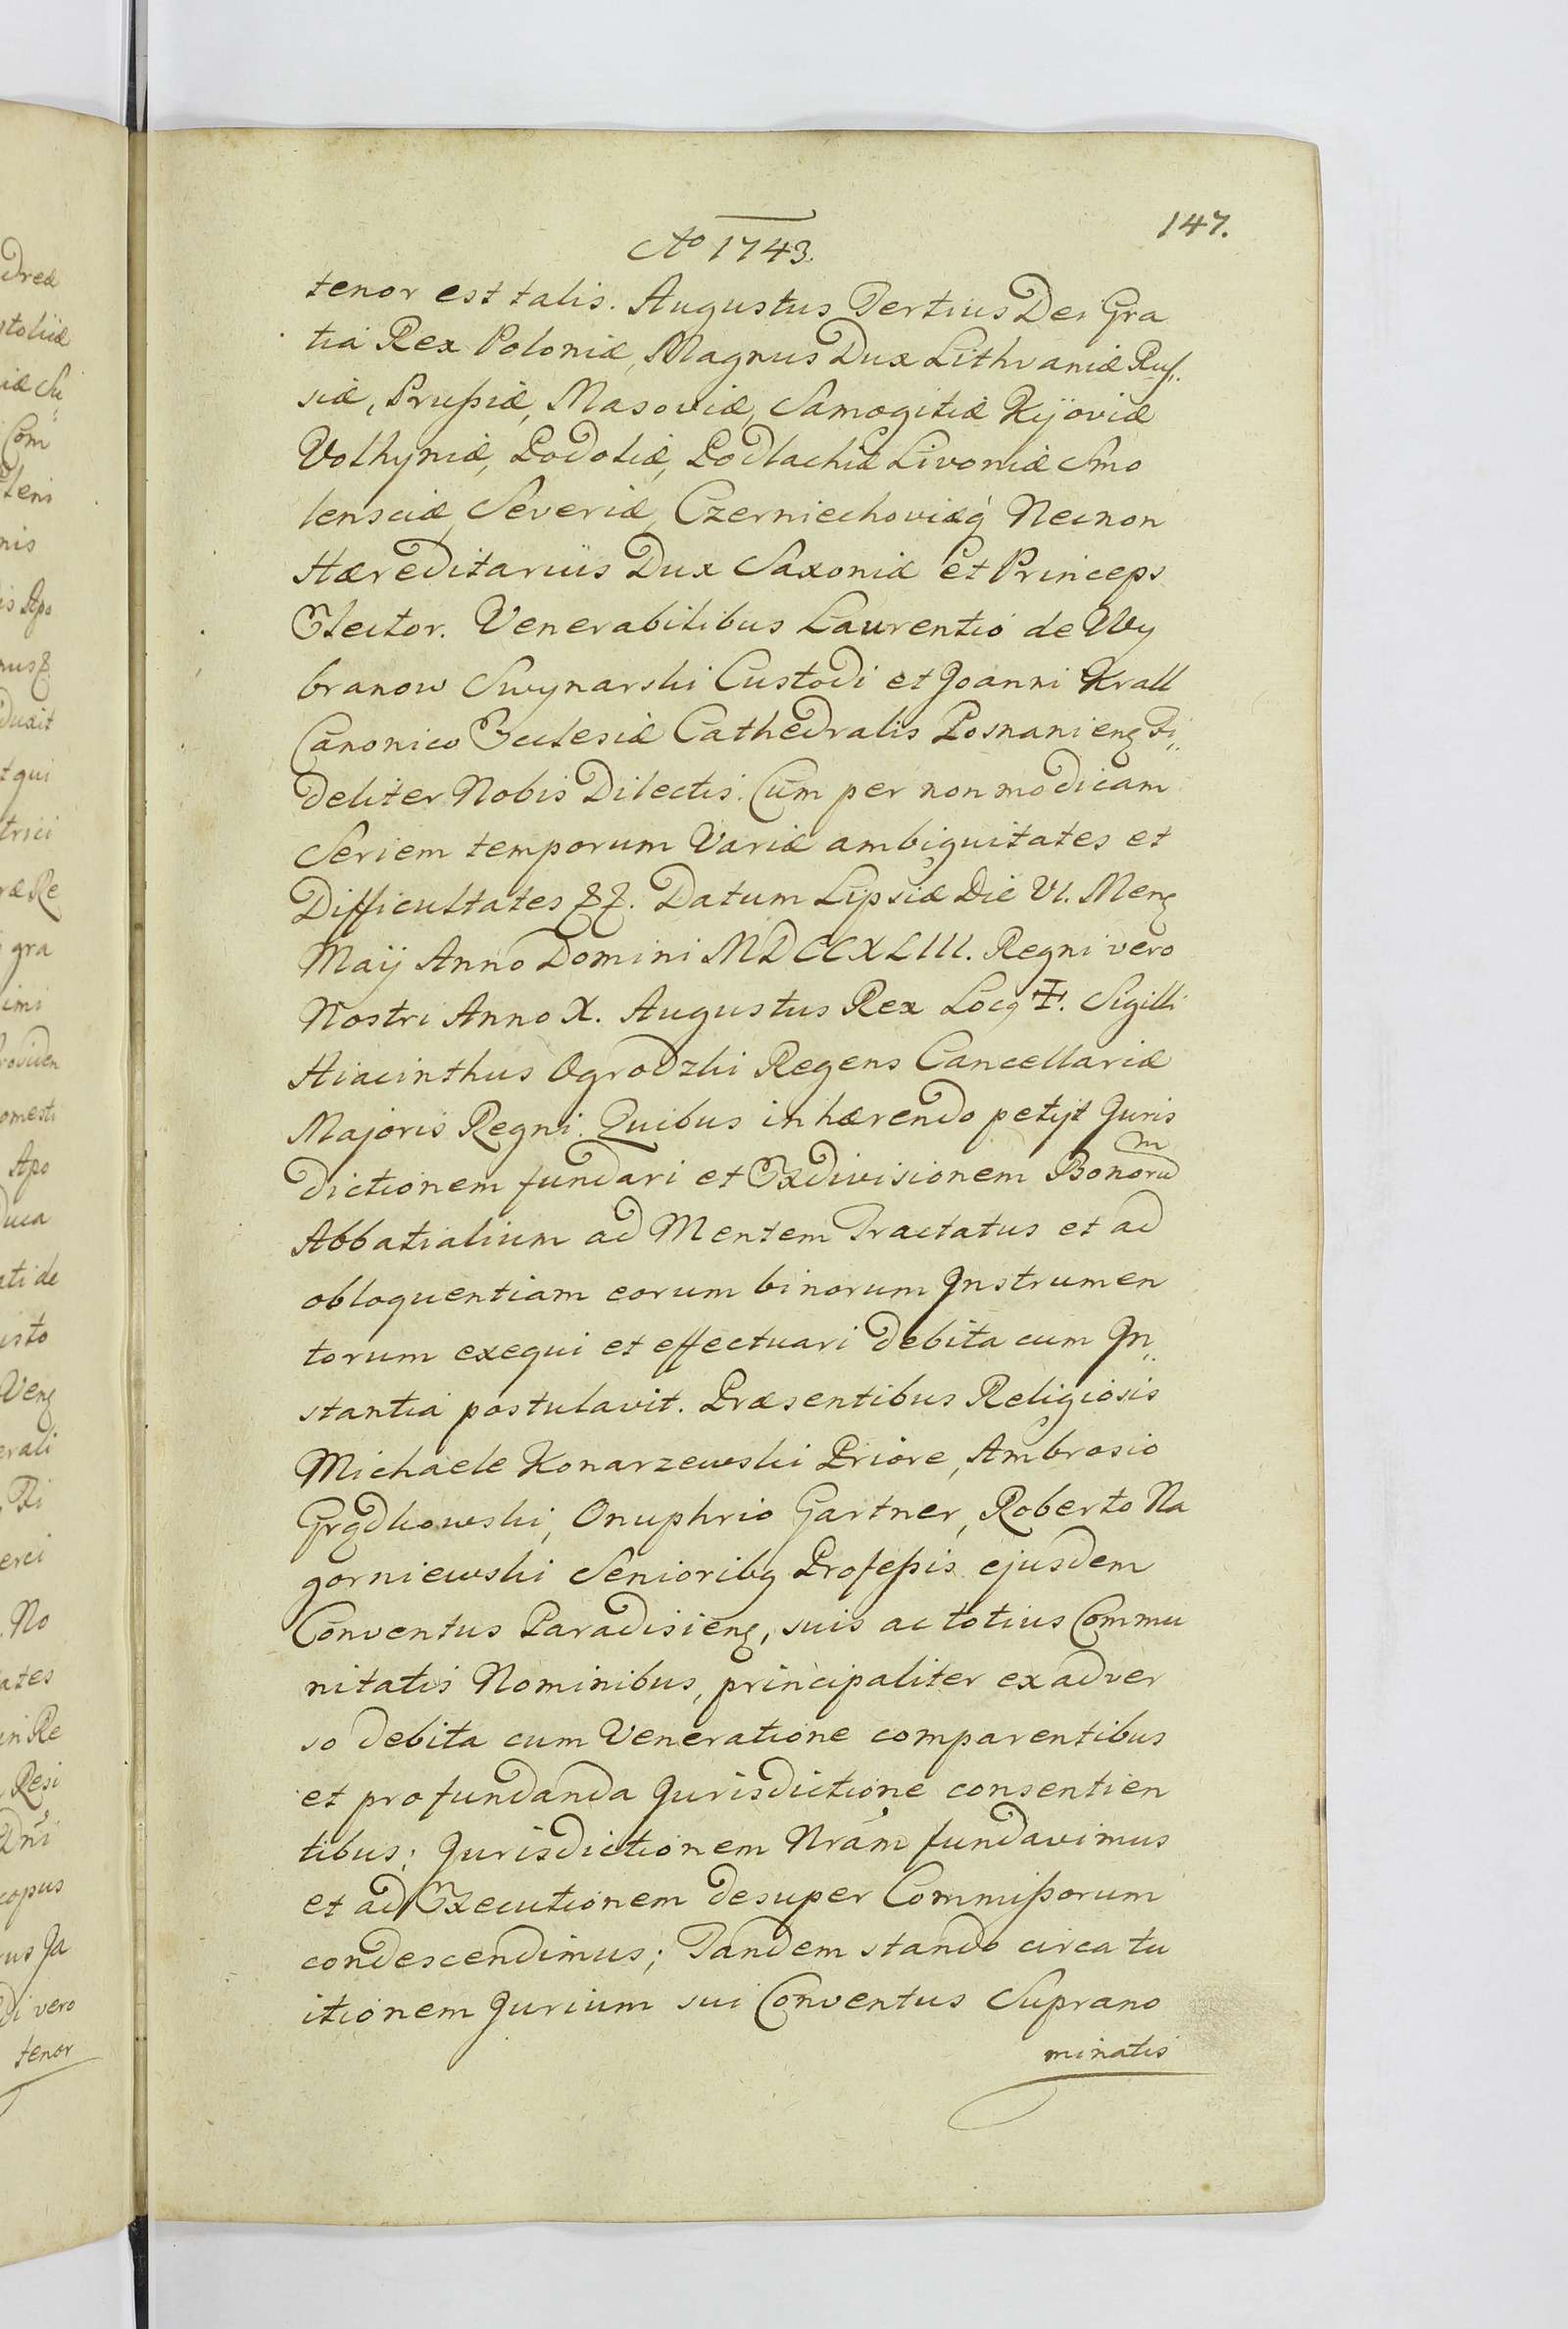 147.
Ao 1743.
tenor est talis. Augustus Tertius Dei Gra
tia Rex Poloniæ, Magnus Dux Lithvaniæ Rus,,
siæ, Prußiæ, Masoviæ, Samogitiæ Kijoviæ
Volhyniæ, Podoliæ, Podlachiæ Livoniæ Smo
lensciæ, Severiæ, Czerniechoviæq Necnon
Hæreditarius Dux Saxoniæ et Princeps
Elector. Venerabilibus Laurentio de Wy
branow Swynarski Custodi et Joanni Krall
Canonico Ecclesiæ Cathedralis Posnanieng Fi,,
deliter Nobis Dilectis. Cum per non modicam
Seriem temporum Variæ ambiguitates et
Difficultates &&. Datum Lipsiæ Die VI. Meng
Maÿ Anno Domini MDCCXLIII. Regni vero
Nostri Anno X. Augustus Rex Locq ✝. Sigilli
Hiacinthus Ogrodzki Regens Cancellariæ
Majoris Regni. Quibus inhærendo petijt Juris
dictionem fundari et Exdivisionem Bonorum
Abbatialium ad Mentem Tractatus et ad
obloquentiam eorum binorum Instrumen
torum exequi et effectuari debita cum In,,
stantia postulavit. Præsentibus Religiosis
Michaele Konarzewski Priore, Ambrosio
Grądkowski, Onuphrio Gartner, Roberto Na
gorniewski Senioribq Profeßis ejusdem
Conventus Paradisieng, suis ac totius Commu
nitatis Nominibus, principaliter ex adver
so debita cum Veneratione comparentibus
et pro fundanda Jurisdictione consentien
tibus; Jurisdictionem Nram fundavimus
et ad Executionem desuper Commißorum
condescendimus; Tandem stando circa tu
itionem Jurium sui Conventus Suprano
minatis